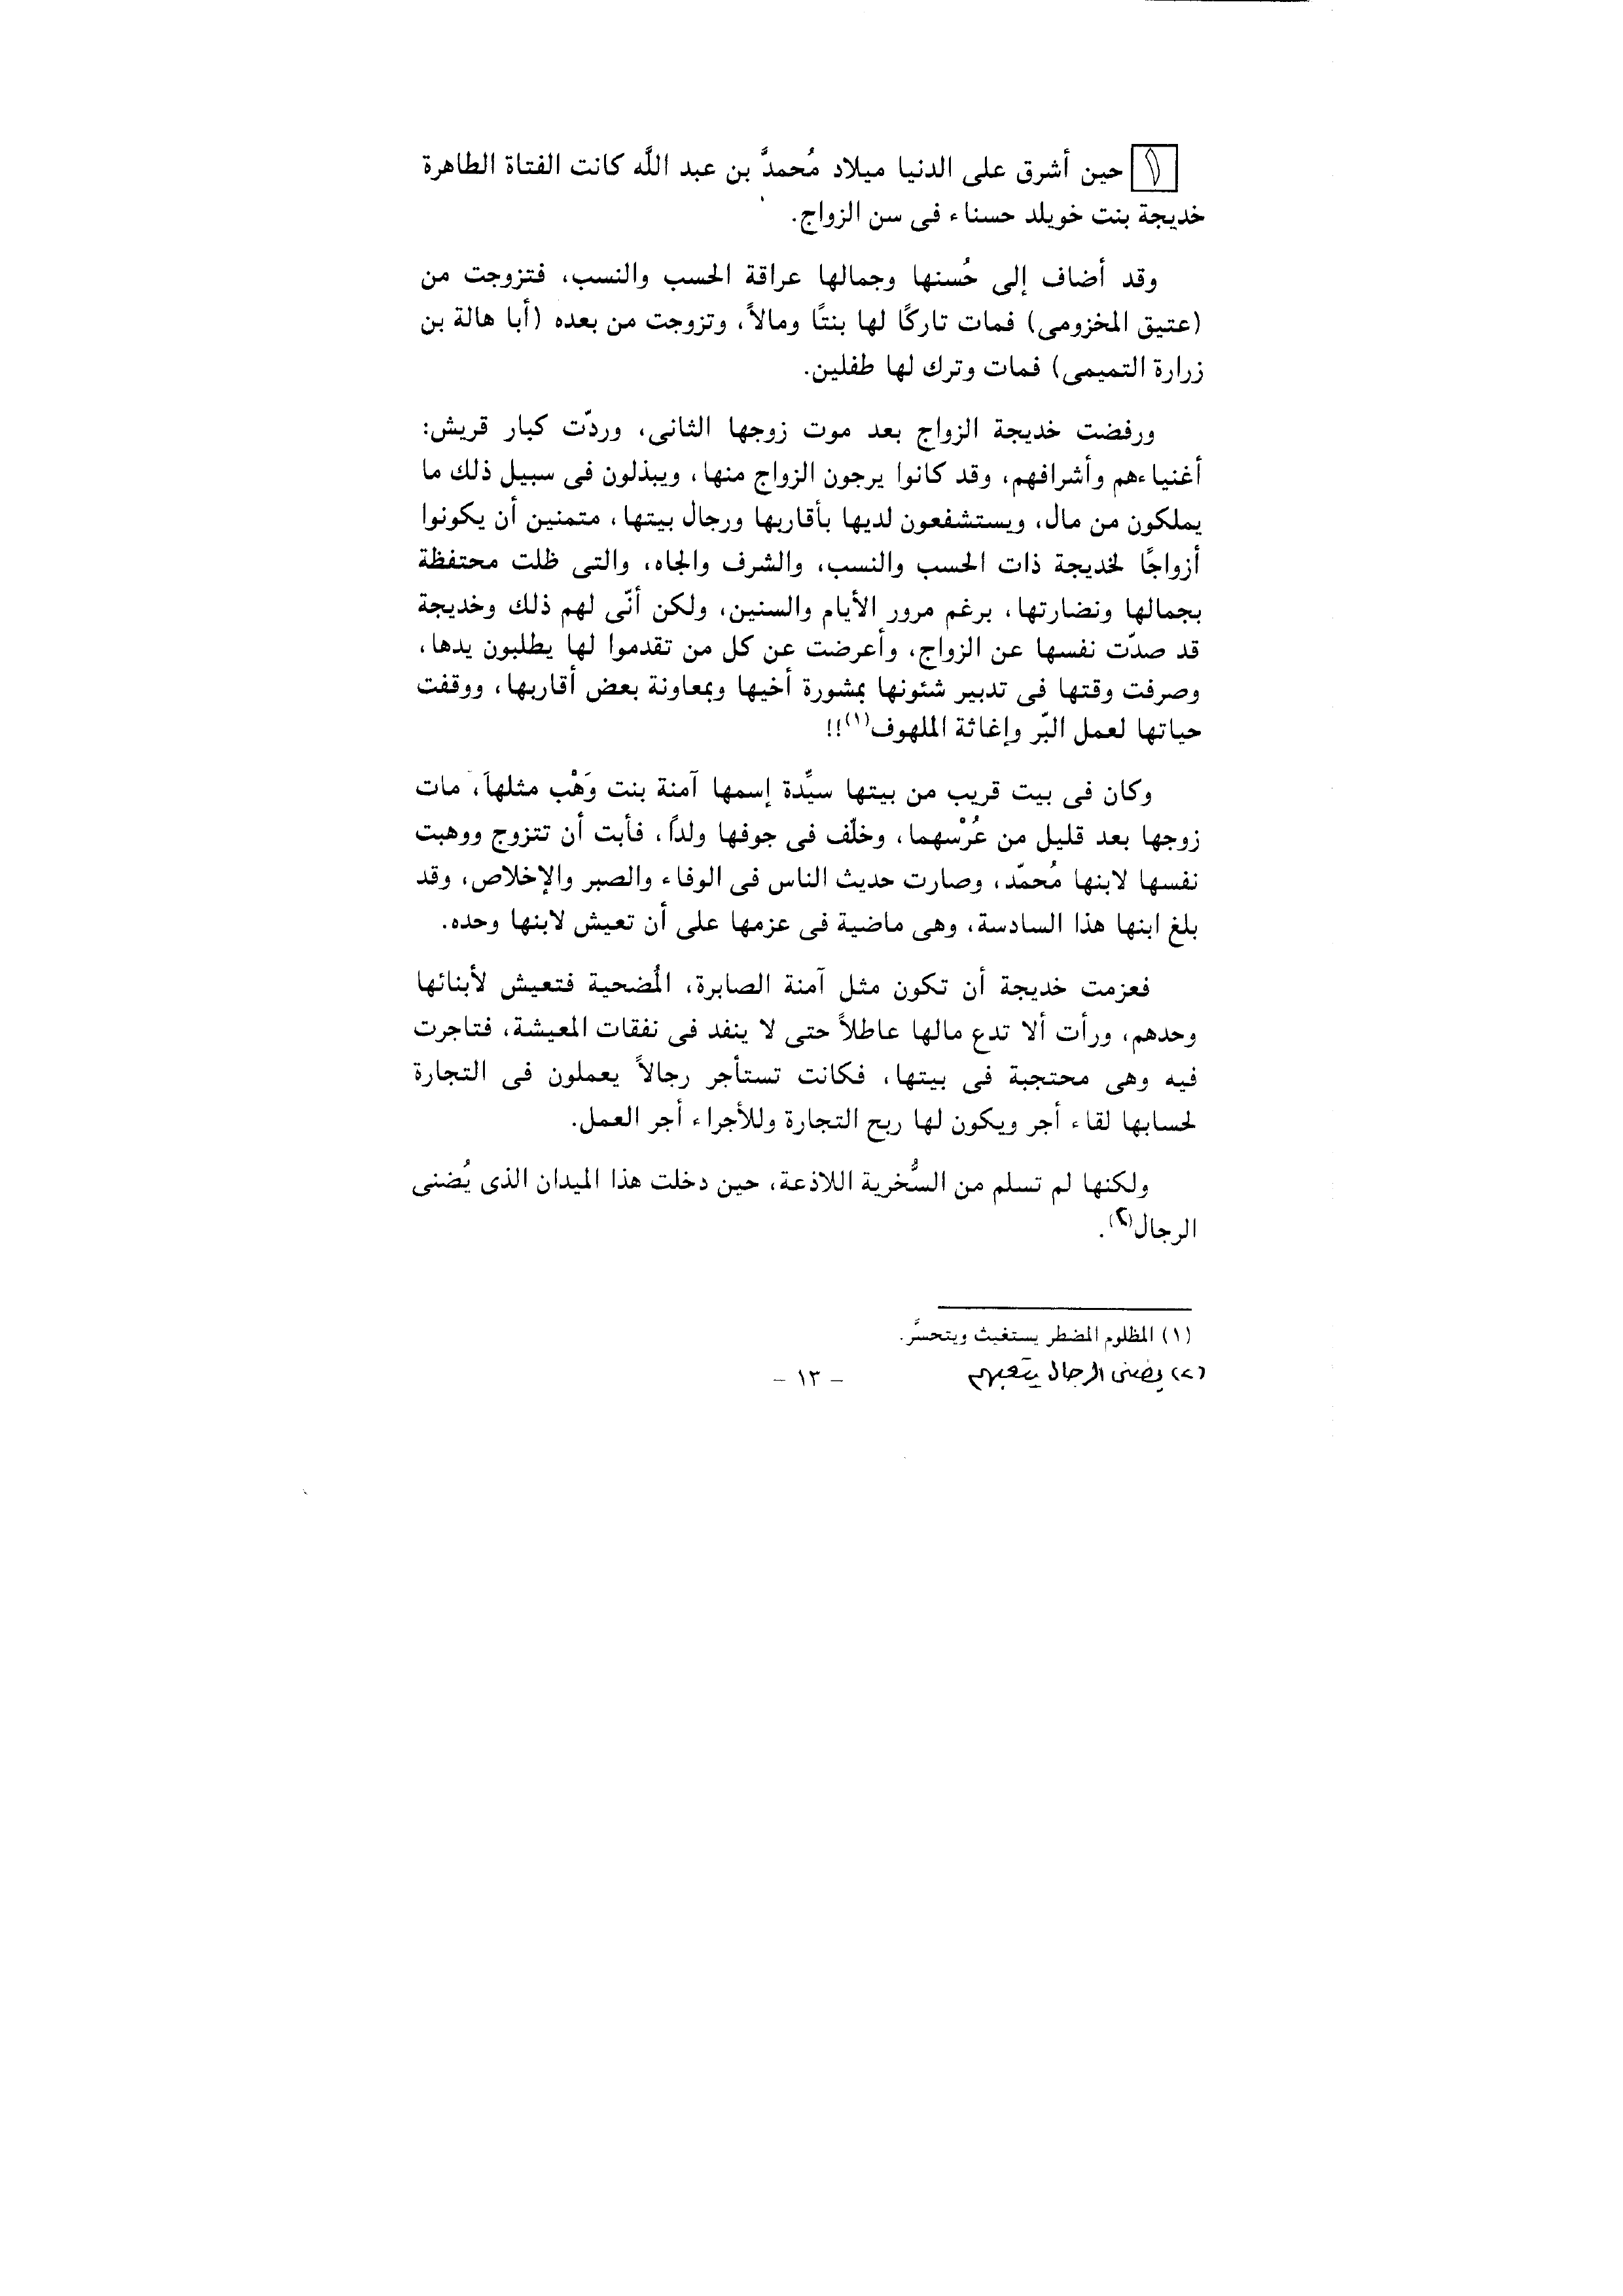 ١ حين أشرق على الدنيا ميلاد مُحمدَّ بن عبد اللَّه كانت الفتاة الطاهرة
خديجة بنت خويلد حسناء فى سن الزواج.
وقد أضاف إلى حُسنها وجمالها عراقة الحسب والنسب، فتزوجت من
(عتيق المخزومى) فمات تاركًا لها بنتًا ومالاً، وتزوجت من بعده (أبا هالة بن
زرارة التميمى) فمات وترك لها طفلين.
ورفضت خديجة الزواج بعد موت زوجها الثانى، وردّت كبار قريش:
أغنياءهم وأشرافهم، وقد كانوا يرجون الزواج منها، ويبذلون فى سبيل ذلك ما
يملكون من مال، ويستشفعون لديها بأقاربها ورجال بيتها، متمنين أن يكونوا
أزواجًا لخديجة ذات الحسب والنسب، والشرف والجاه، والتى ظلت محتفظة
بجمالها ونضارتها، برغم مرور الأيام والسنين، ولكن أنّى لهم ذلك وخديجة
قد صدّت نفسها عن الزواج، وأعرضت عن كل من تقدموا لها يطلبون يدها،
وصرفت وقتها فى تدبير شئونها بمشورة أخيها وبمعاونة بعض أقاربها، ووقفت
حياتها لعمل البّر وإغاثة الملهوف(١)!!
وكان فى بيت قريب من بيتها سيِّدة إسمها آمنة بنت وَهْب مثلهاَ، مات
زوجها بعد قليل من عُرْسهما، وخلّف فى جوفها ولداً، فأبت أن تتزوج ووهبت
نفسها لابنها مُحمّد، وصارت حديث الناس فى الوفاء والصبر والإخلاص، وقد
بلغ ابنها هذا السادسة، وهى ماضية فى عزمها على أن تعيش لابنها وحده.
فعزمت خديجة أن تكون مثل آمنة الصابرة، المُضحية فتعيش لأبنائها
وحدهم، ورأت ألا تدع مالها عاطلاً حتى لا ينفد فى نفقات المعيشة، فتاجرت
فيه وهى محتجبة فى بيتها، فكانت تستأجر رجالاً يعملون فى التجارة
لحسابها لقاء أجر ويكون لها ربح التجارة وللأجراء أجر العمل.
ولكنها لم تسلم من السُّخرية اللاذعة، حين دخلت هذا الميدان الذى يُضنى
الرجال(٢).
(١) المظلوم المضطر يستغيث ويتحسَّر.
(٢) يضنى الرجال يتعبهم
– ١٣ –